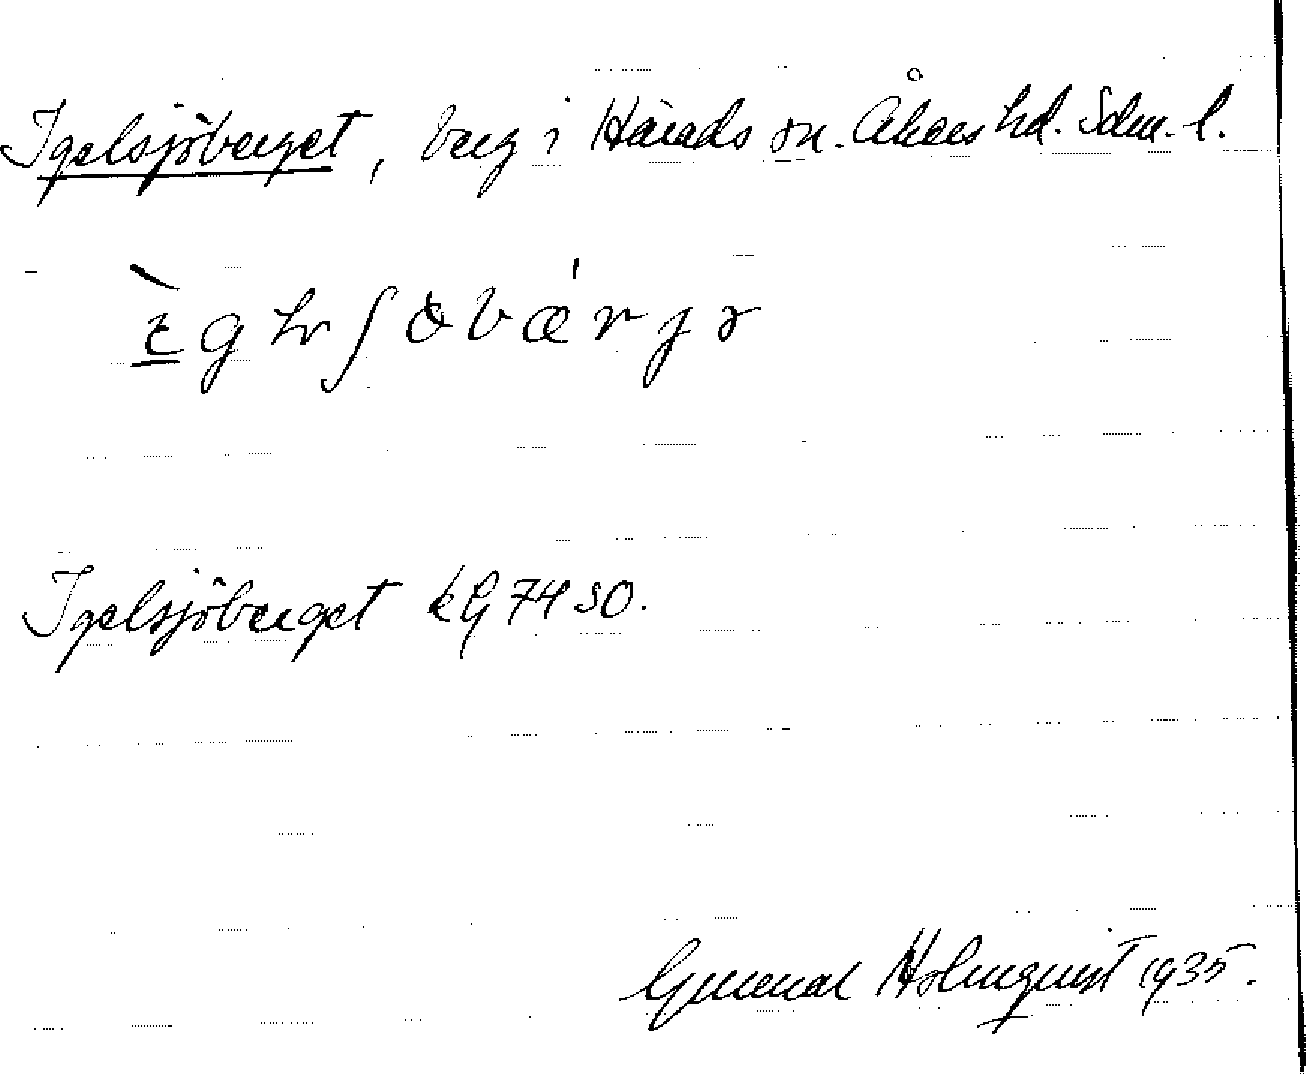 Igelsjöberget, berg i Härads sn. Åkers hd. Sdm. l.
Igelsjöberget kG 74 SO.
Gunnar Holmquist 1935.